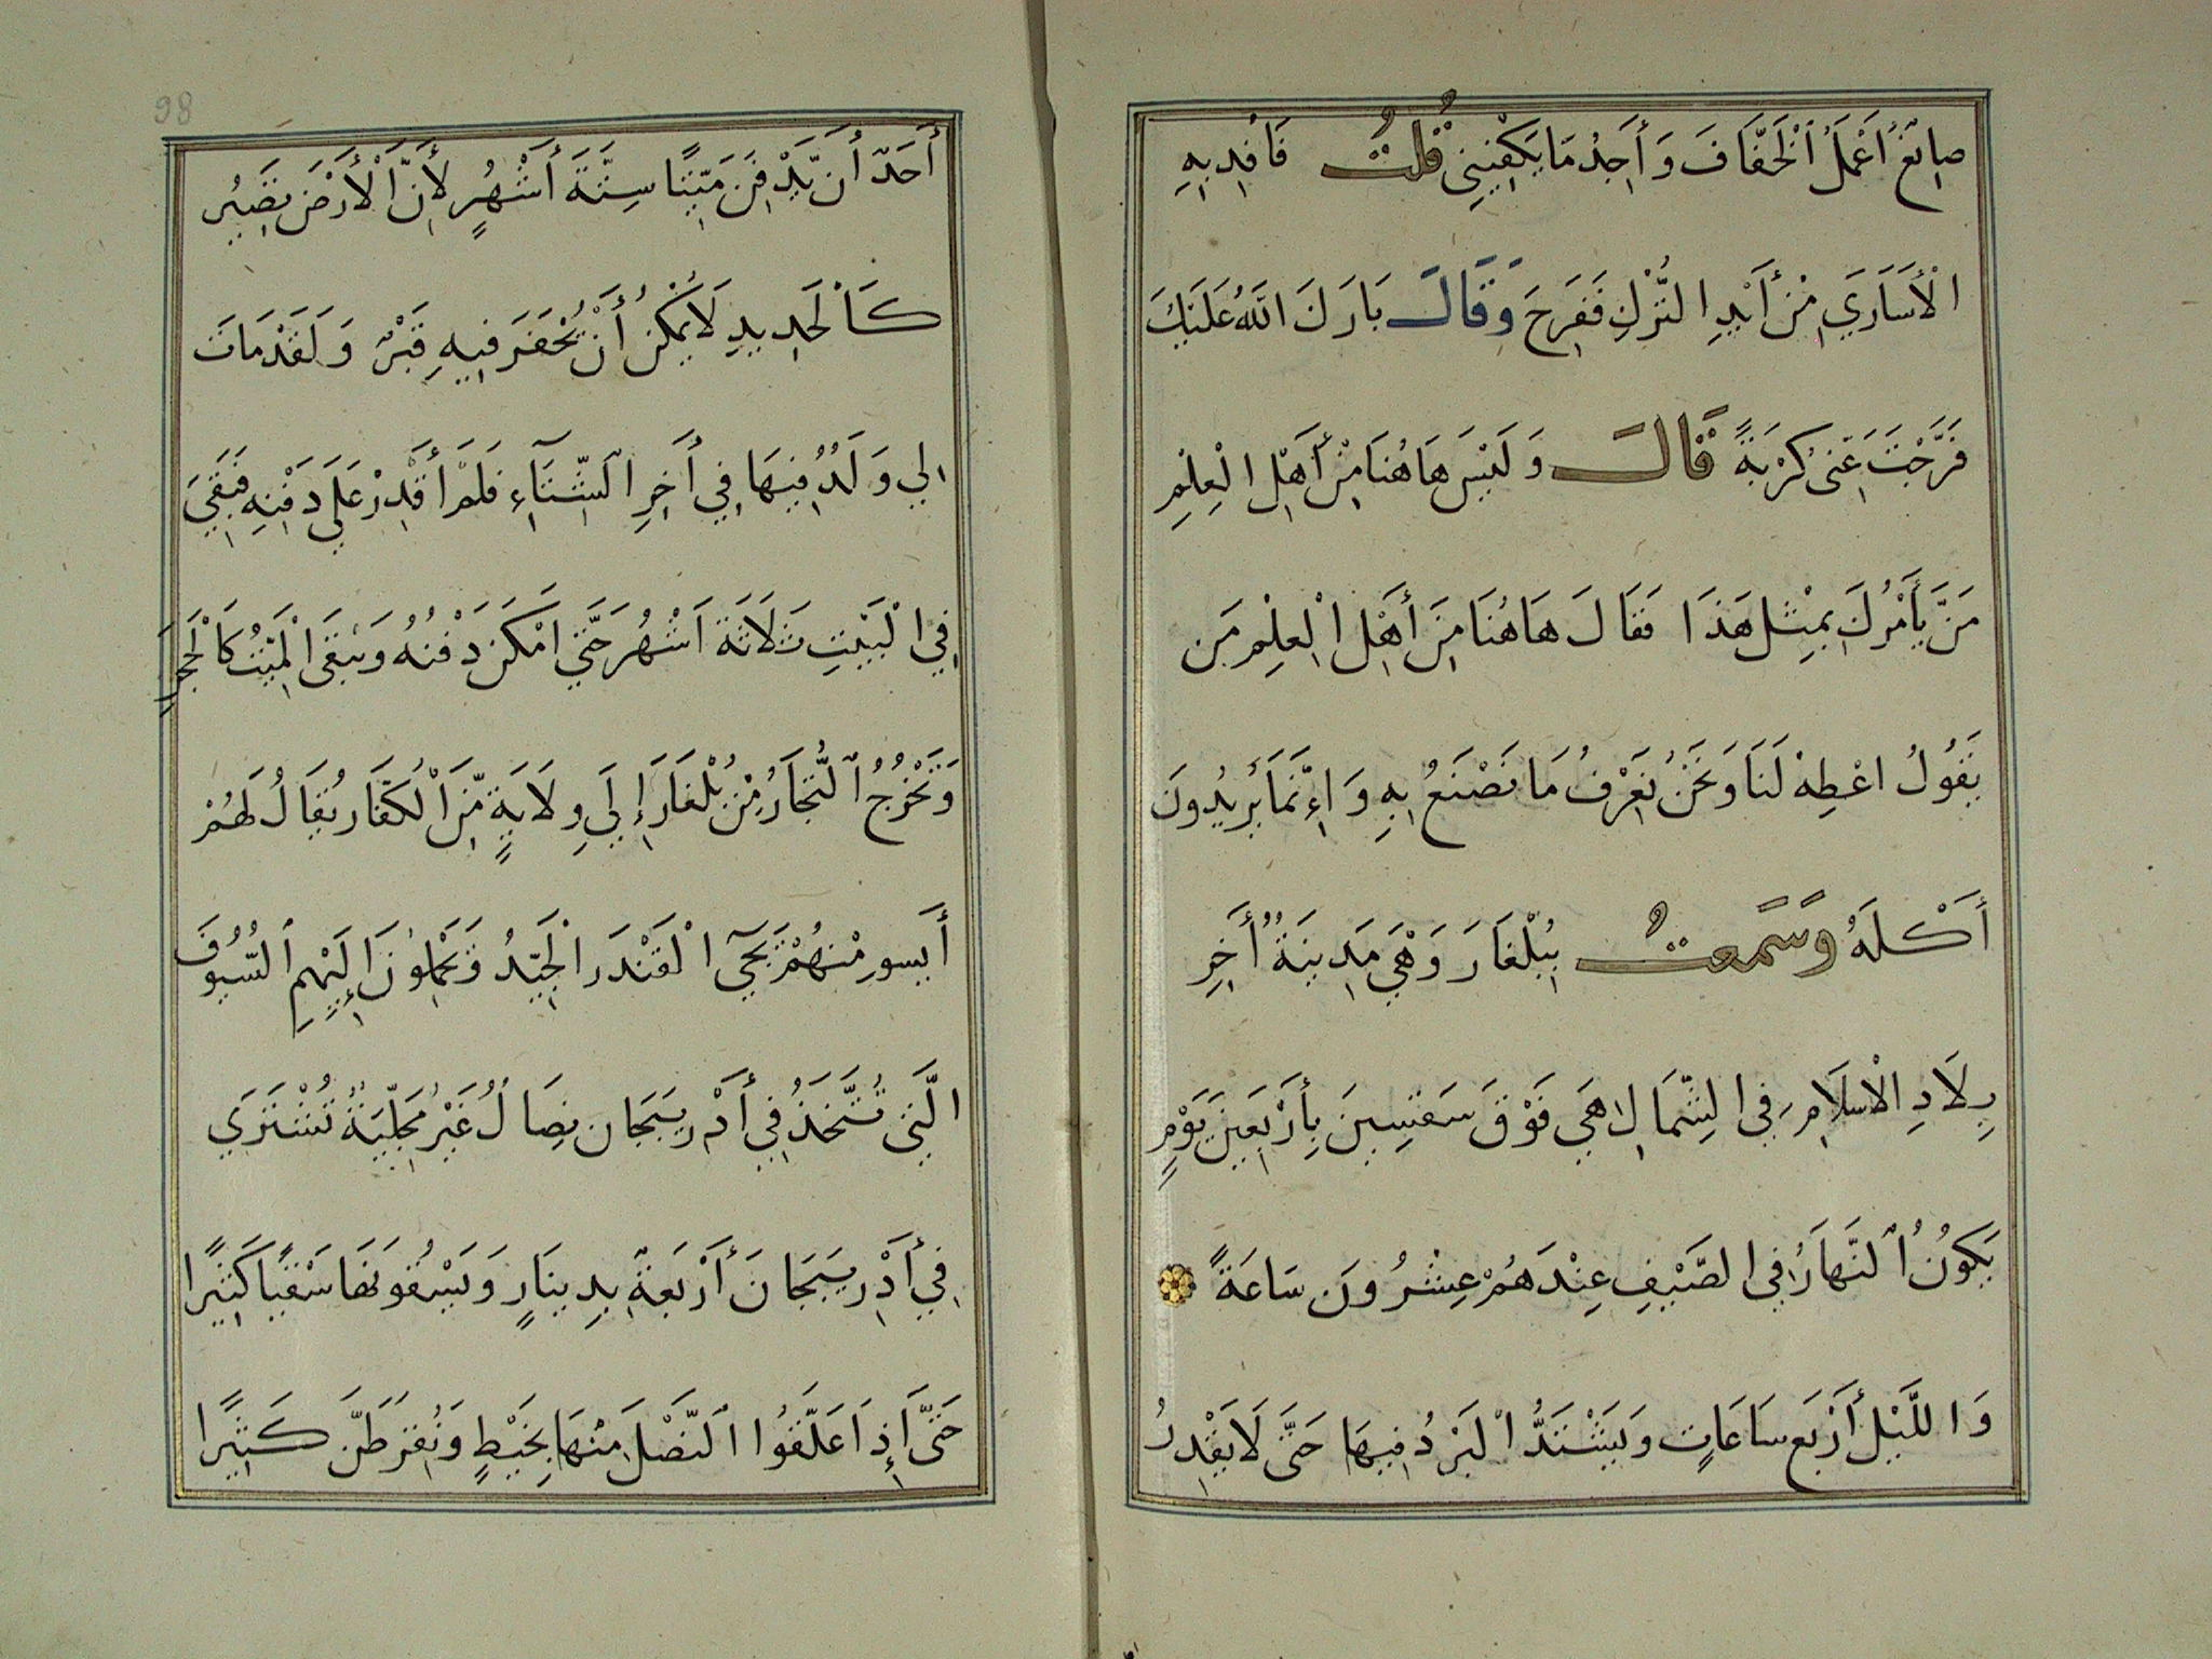 صِائغٌ اَعْمَلُ اَلْخَفَّافَ وَأَجِدُ مَا يَكْفِينِي قُلتُ فَافْدِ بِهِ
الْأَسَارَي مِنْ أَيْدِ التُّرْكِ فَفَرِحَ وَقَالَ بَارَكَ اللهُ عَلَيْكَ
فَرَّجْتَ عَنِّى كُرْبَةً قَالَ وَلَيْسَ هَاهُنَا مِنْ أَهْلِ الْعِلْمِ
مَنَ يَأَمُرُكَ بِمِثْلِ هَذَا فَقَالَ هَاهُنَا مِنَ أَهْلِ الْعِلْمِ مَن
يَقُولُ اعْطِهِ لَنَا وَنَحْنُ نَعْرِفُ مَا نَصْنَعُ بِهِ وَاِءنَّمَا يُرِيدُونَ
أَكْلَهُ وَسَمَعتُ بِبُلْغَارَ وَهْيَ مَدِينَةٌ أُخِرِ
بِلَادِ الْاسْلَامِ فِي الشِّمَالِ هِيَ فَوْقَ سَقسِينَ بِأَرْبَعِينَ يَوْمٍ
يَكُونُ اُلنَّهَارُ فِي الصَّيْفِ عِنْدَهُمْ عِشْرُونَ سَاعَةً
وَاللَّيْلُ أَرْبَع سَاعَاتٍ وَيَشْتَدُّ الْبَرْدُ فِيهَا حَتَّى لَا يَقْدِرُ
98
أَحَدٌ أَن يَّدْفِنَ مَيِّتًا سِتَّةَ أَشْهُرٍ لِأَنَّ اَلْأَرْضَ تَصِيرُ
كَالْحَدِيدِ لَا يُمْكِنُ أَنْ يُحْفَرَ فِيهِ قَبْرٌ وَلَقَدْ مَاتَ
لِي وَلَدٌ فِيهَا فِي أَخِرِ الشِّتَآءِ فَلَمْ أَقْدِرْ عَلَي دَفْنِهِ فَبَقِيَ
فِي الْبَيْتِ ثَلَاثَةَ اَشْهُرَ حَتَّي اَمْكَنَ دَفْنُهُ وَيَبْقَى اَلْمَيِّتُ كَاَلْحَجَرِ
وَتَخْرُجُ اُلتُّجَارُ مِنْ بُلْغَارَ إِلَي وِلَايَةٍ مِّنَ اَلْكُفَّارِ يُقَالُ لَهُمْ
أَبسور مِنْهُمْ يَجِىَٓ الْقَنْدَر الْجَيِّدُ وَيَحْمِلوُنَ إِلَيْهِمِ اُلسُّيُوفَ
الَّتِي تُتَّخَذُ فِي أَدْرِيبَجَان نِصَالٌ غَيْرُ مَجَلِّيَةٌ تُشْتَرَي
فِي أَدْرِيبَجَانَ أَرْبَعَةٌ بِدِينَارٍ وَيَسْقُونهَا سَقْيًا كَثِيرًا
حَتَّى إِذَا عَلَّقُوا اَلنَّصْلَ مِنْهَا بِخَيْطٍ وَنُقِرَ طَنَّ كَثِيرًا